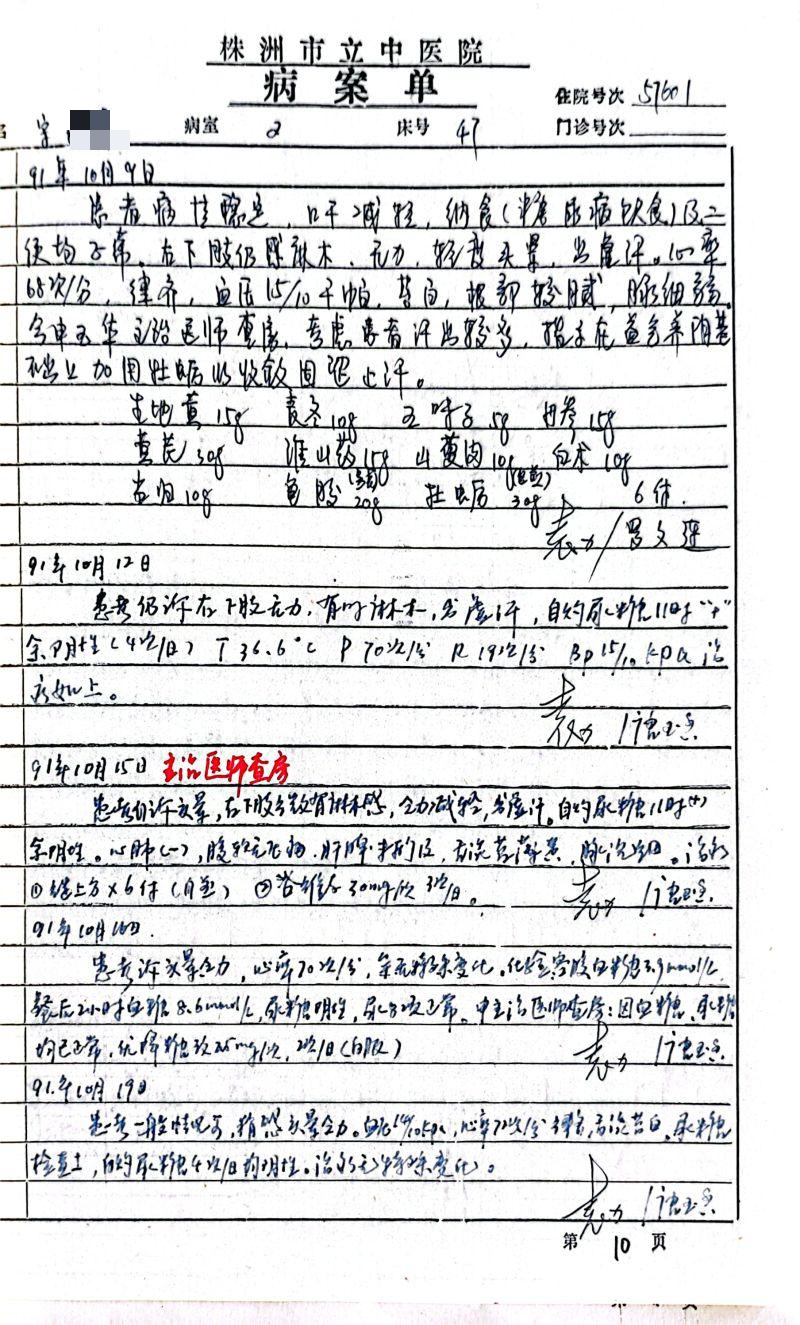 株洲市立中医院
病案单
住院号次 57601
名 宋 病室 2 床号 47 门诊号次
91年10月9日
患者病情稳定,口干减轻,纳食(糖尿病饮食)及二
便均正常。右下肢仍感麻木、无力,轻度头晕,出虚汗。心率
68次/分,律齐,血压15/10千帕,苔白,根部较腻,脉细弱。
今申玉华主治医师查房,考虑患者汗出较多,指示在益气养阴基
础上加用牡蛎以收敛固涩止汗。
生地黄15g 麦冬10g 五味子5g 丹参15g
黄芪30g 淮山药15g 山萸肉10g 白术10g
当归10g 龟胶20g 牡蛎30g 6付.
袁力/罗文
91年10月12日
患者仍诉右下肢无力,有时麻木,出虚汗,自约尿糖11时"+"
余阴性(4次/日) T 36.6°C P 70次/分 R 19次/分 Bp 15/10 kpa 治
疗如上。
袁力
91年10月15日 主治医师查房
患者自诉头晕,右下肢有麻木感,乏力减轻,出虚汗。自约尿糖11时(+)
余阴性。心肺(-),腹软无压痛,肝脾未扪及,舌淡苔薄黄,脉沉细。治疗
①继上方×6付(自煎) ②30mg/次 3次/日。
袁力
91年10月16日.
患者诉头晕乏力,心率70次/分,余无特殊变化。化验空腹血糖3.9mmol/L
餐后2小时血糖8.6mmol/L,尿糖阴性,尿8项正常。申主治医师查房:因血糖、尿糖
均已正常,优降糖改2.5mg/次,2次/日(自服)
袁力
91.年10月19日
患者一般情况可,稍感头晕乏力。血压14/10kpa,心率72次/分 律齐,舌淡苔白。尿糖
检查上,自约尿糖4次/日均阴性。治疗无特殊变化。
袁力
第 10 页